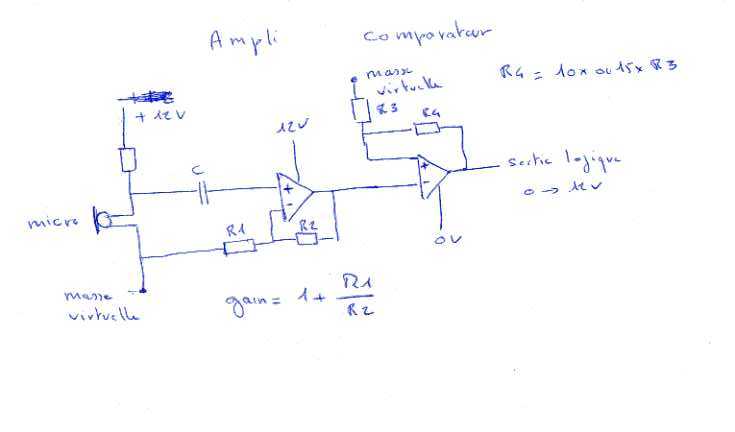 Ampli
comparateur
R4 = 10x ou 15x R3
masse
virtuelle
R3
R4
+ 12V
12V
C
sortie logique
0 → 12V
micro
R1
R2
0V
masse
virtuelle
gain = 1 + R1
R2